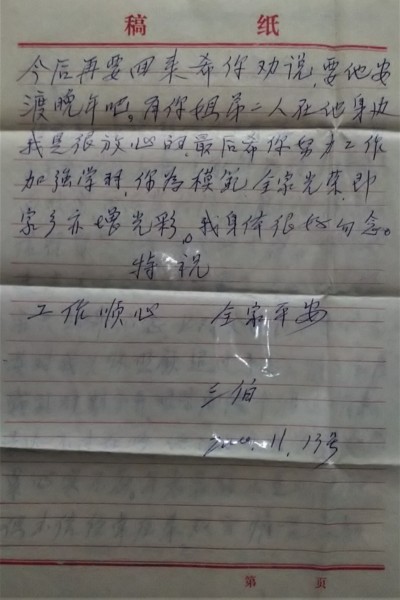 稿 纸
今后再要回来希你劝说,要他安
渡晚年吧,有你姐弟二人在他身边
我是很放心的,最后希你努力工作
加强学习,你为模范全家光荣,即
家乡亦增光彩。我身体很好勿念。
特祝
工作顺心 全家平安
三伯
11.13号
第 页